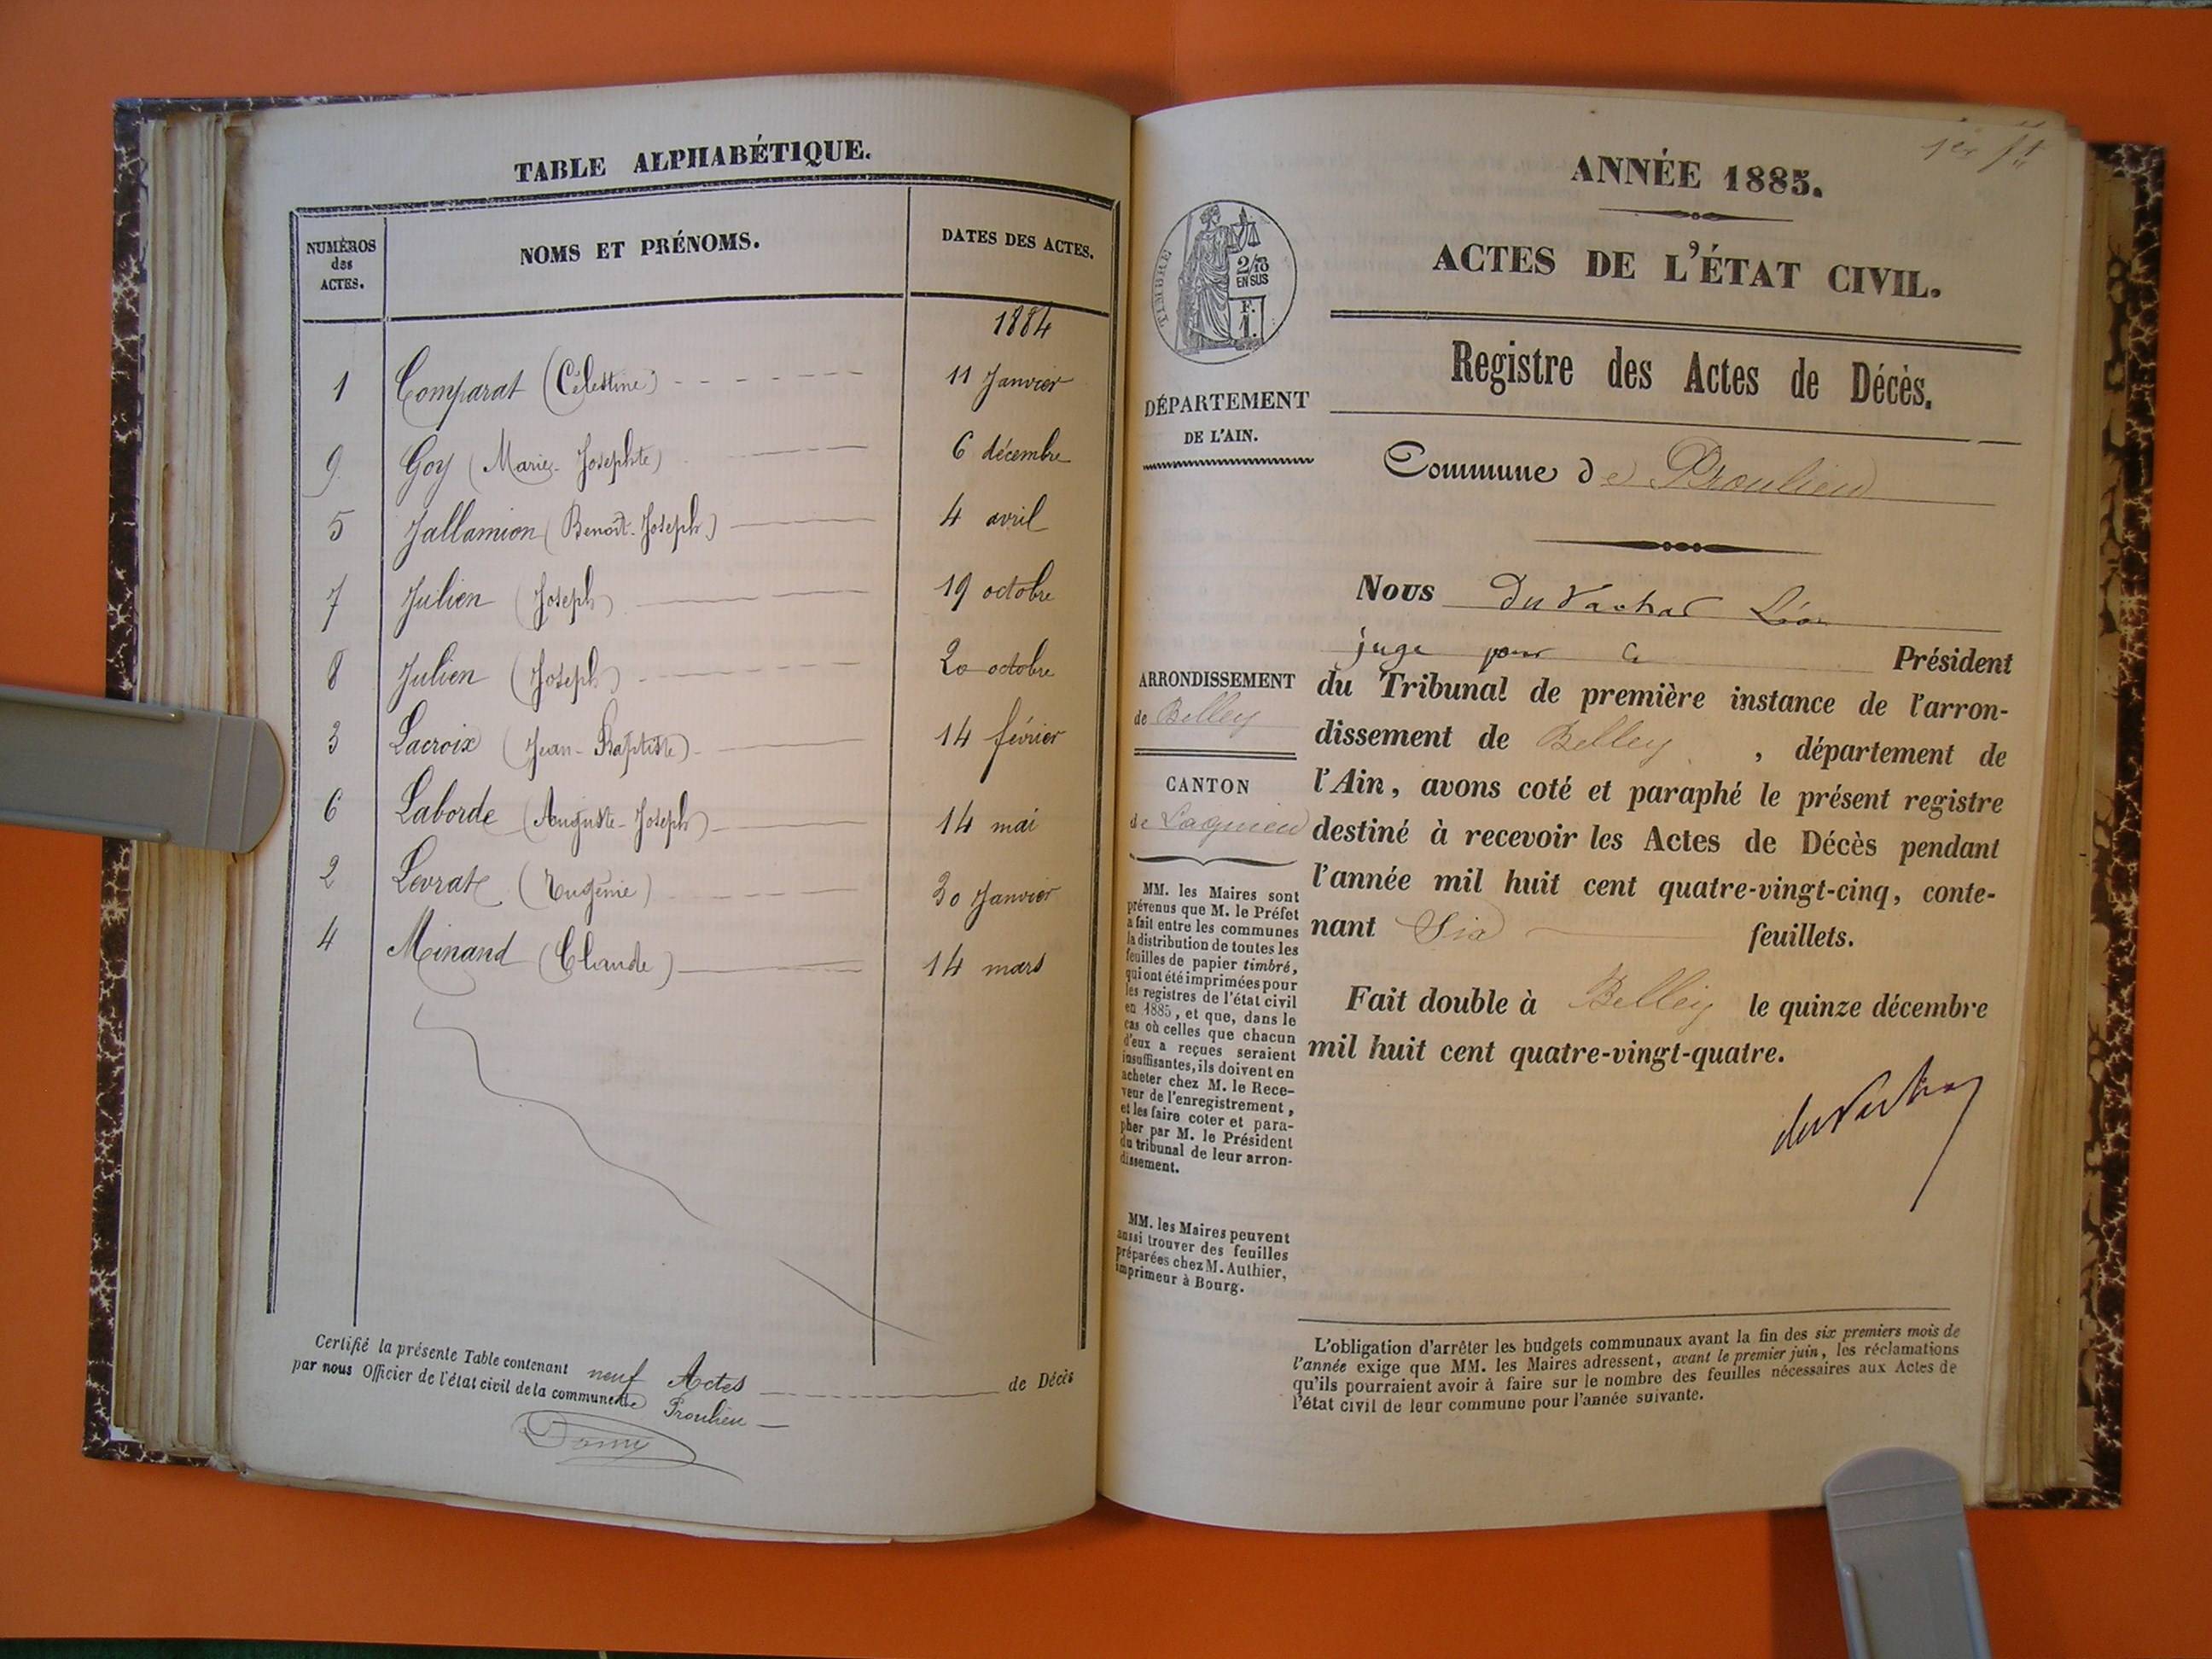 TABLE ALPHABÉTIQUE.
NUMÉROS des ACTES.
NOMS ET PRÉNOMS.
DATES DES ACTES.
1884
1 Comparat (Célestine) 11 Janvier
9 Goy (Marie-Josephte) 6 décembre
5 Jallamion (Benoît-Joseph) 4 avril
7 Julien (Joseph) 19 octobre
8 Julien (Joseph) 20 octobre
3 Lacroix (Jean-Baptiste) 14 février
6 Laborde (Auguste-Joseph) 14 mai
2 Levrat (Eugénie) 30 Janvier
4 Moinand (Claude) 14 mars
Certifié la présente Table contenant neuf Actes de Décès
par nous Officier de l'état civil de la commune de Proulieu
1er ft
ANNÉE 1885.
ACTES DE L'ÉTAT CIVIL.
TIMBRE
2/10
EN SUS
F.
1.
Registre des Actes de Décès.
DÉPARTEMENT
DE L'AIN.
Commune de Proulieu
ARRONDISSEMENT
de Belley
CANTON
de Lagnieu
MM. les Maires sont
prévenus que M. le Préfet
a fait entre les communes
la distribution de toutes les
feuilles de papier timbré,
qui ont été imprimées pour
les registres de l'état civil
en 1885, et que, dans le
cas où celles que chacun
d'eux a reçues seraient
insuffisantes, ils doivent en
acheter chez M. le Rece-
veur de l'enregistrement,
et les faire coter et para-
pher par M. le Président
du tribunal de leur arron-
dissement.
MM. les Maires peuvent
aussi trouver des feuilles
préparées chez M. Authier,
imprimeur à Bourg.
Nous du Vachat Léon
juge pour le Président
du Tribunal de première instance de l'arron-
dissement de Belley, département de
l'Ain, avons coté et paraphé le présent registre
destiné à recevoir les Actes de Décès pendant
l'année mil huit cent quatre-vingt-cinq, conte-
nant Six feuillets.
Fait double à Belley le quinze décembre
mil huit cent quatre-vingt-quatre.
du Vachat
L'obligation d'arrêter les budgets communaux avant la fin des six premiers mois de
l'année exige que MM. les Maires adressent, avant le premier juin, les réclamations
qu'ils pourraient avoir à faire sur le nombre des feuilles nécessaires aux Actes de
l'état civil de leur commune pour l'année suivante.